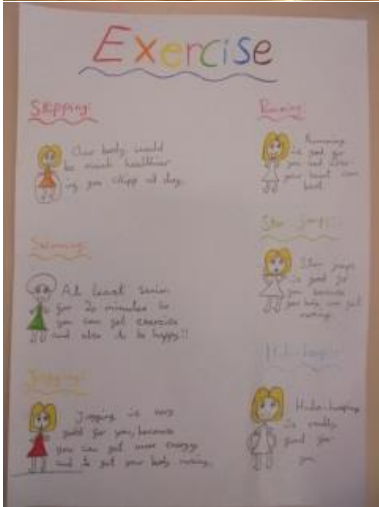 Exercise
Skipping:
Our body would
be much healthier
if you skipp all day.
Swimming:
At least swim
for 20 minutes so
you can get exercise
and also to be happy!!
Jogging:
Jogging is very
good for you, because
you can get more energy
and to get your body moving.
Running:
Running
is good for
you
your heart can
beat.
Star jumps:
Star jumps
is good for
you because
you can get
moving.
Hula-hooping:
Hula-hooping
is really
good for
you